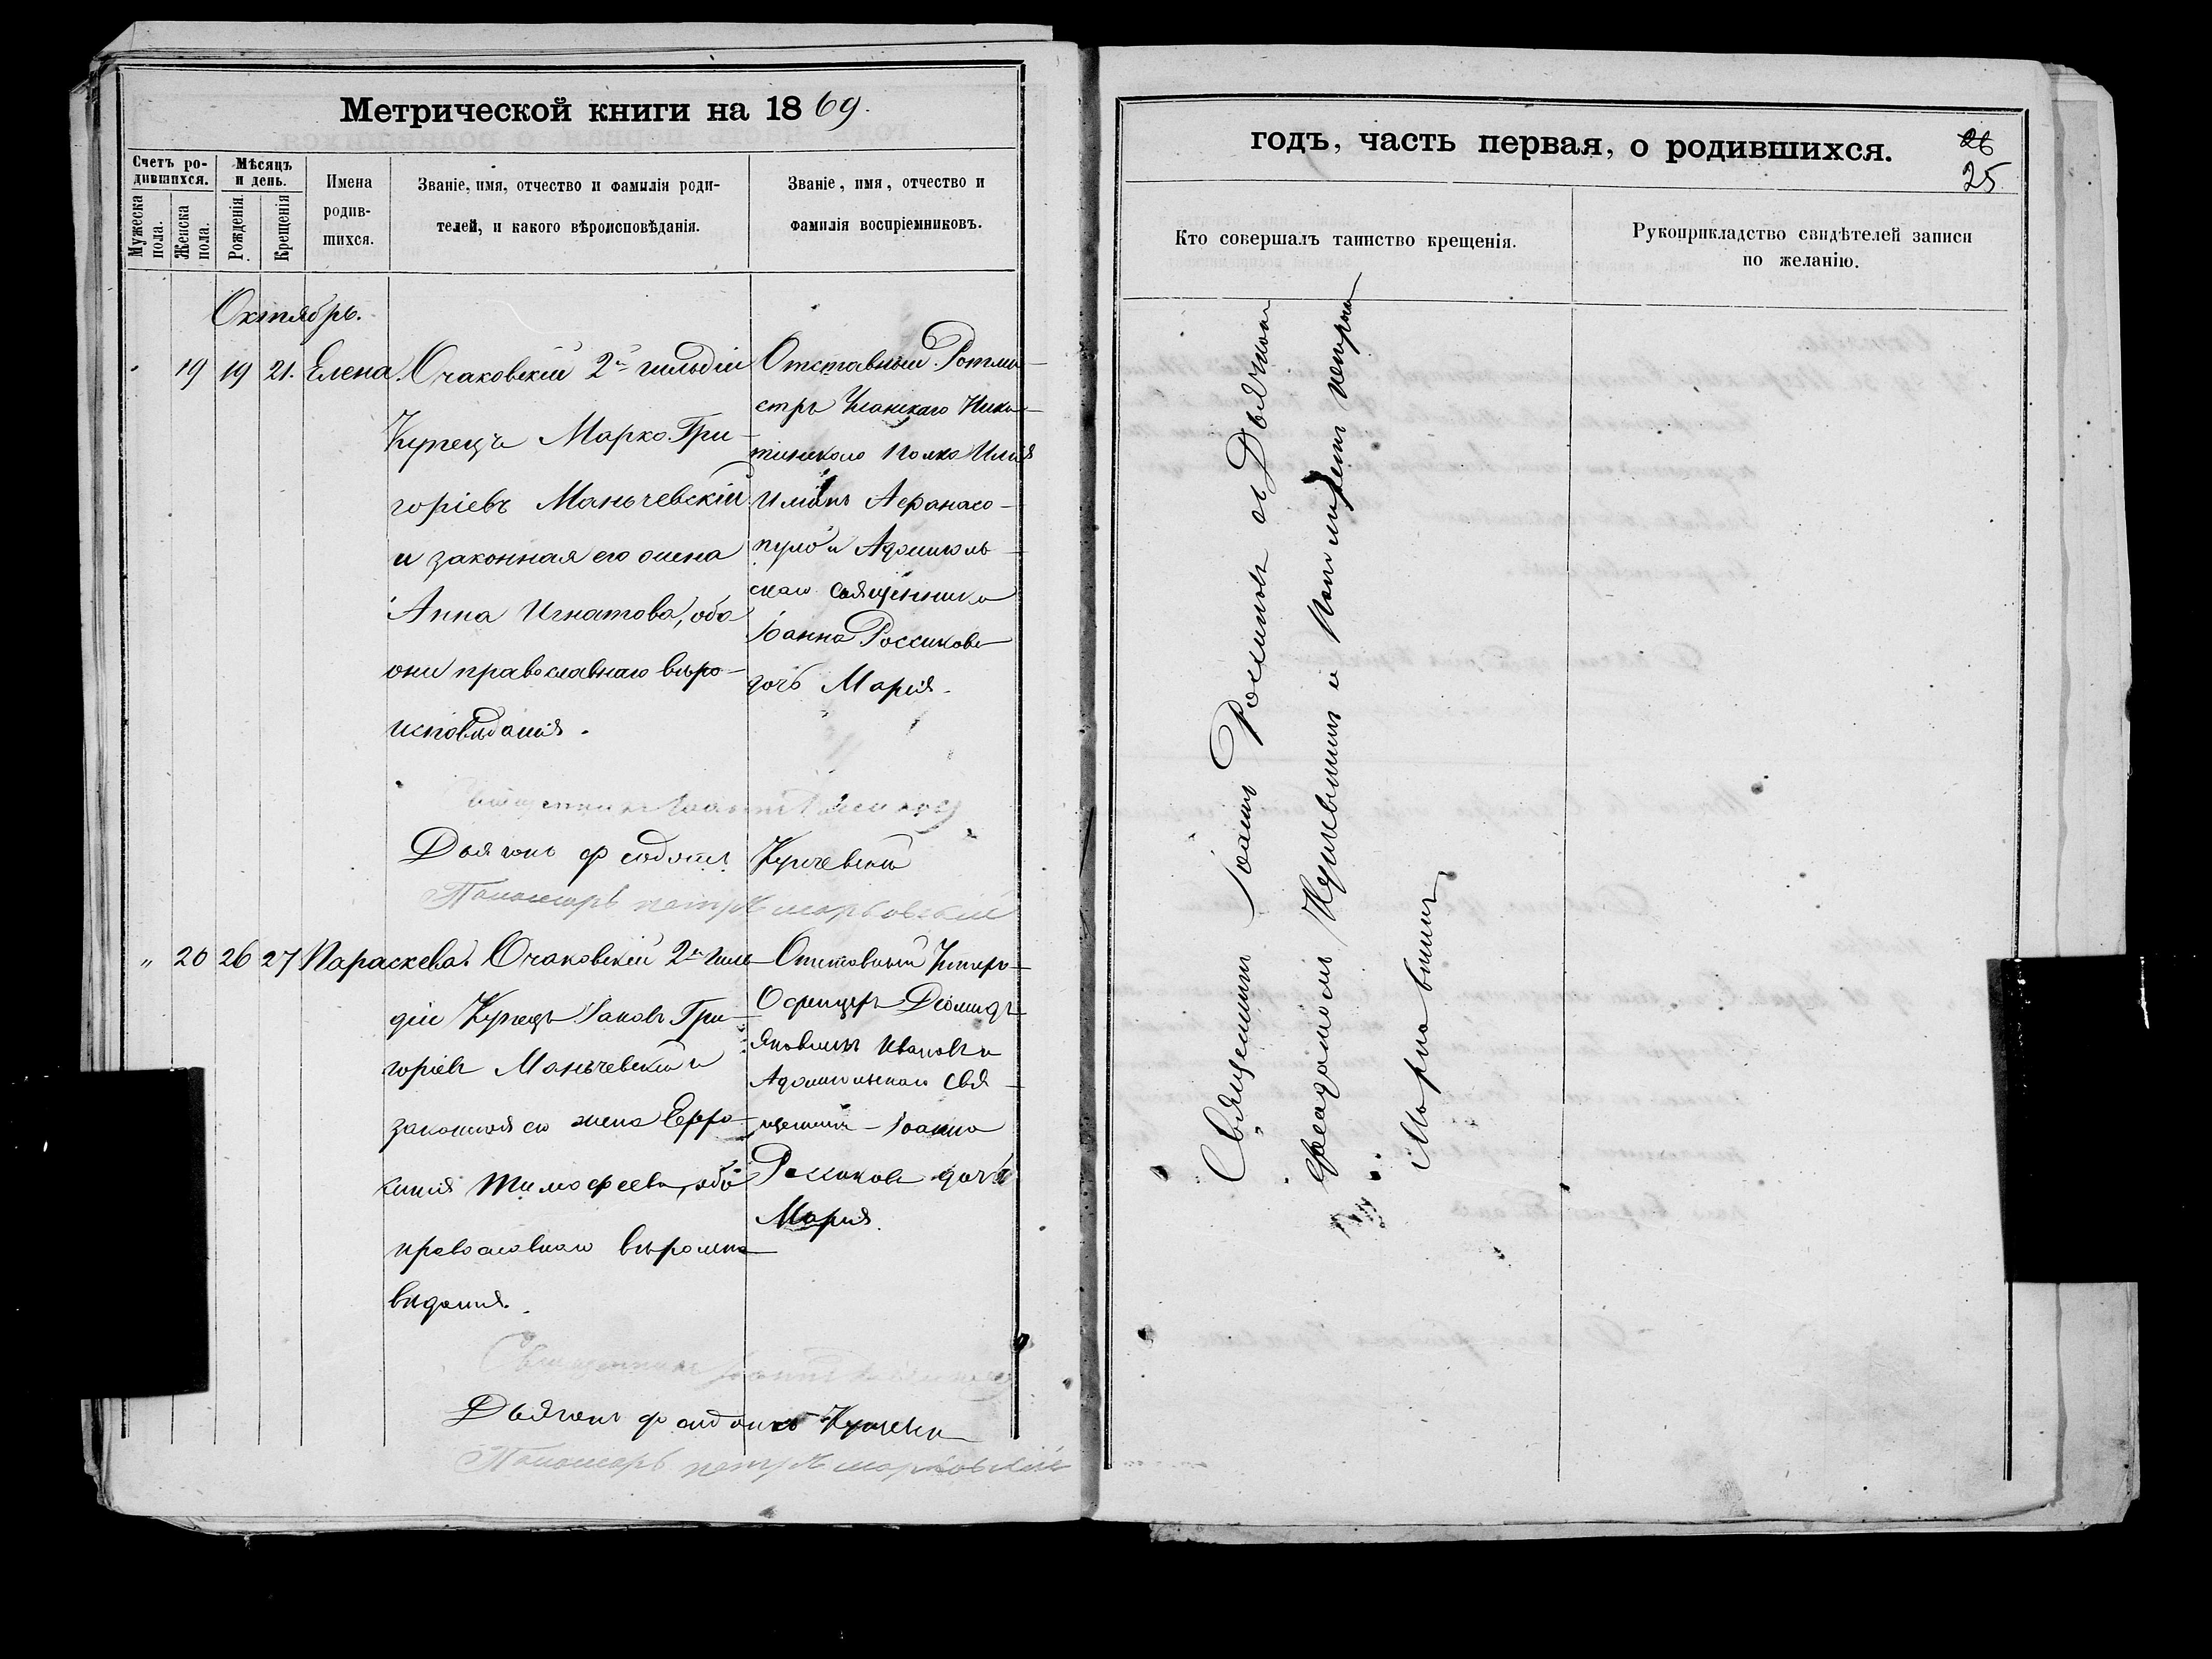 Метрической книги на 1869.
Счетъ родившихся.
Мужеска пола.
Женска пола.
Мѣсяцъ и день.
Рожденія.
Крещенія
Имена
родив-
шихся.
Званіе, имя, отчество и фамилія роди-
телей, и какого вѣроисповѣданія.
Званіе, имя, отчество и
фамилія воспріемниковъ.
Октябрь.
19 19 21. Елена.
Очаковскій 2й гильдіи
Купецъ Марко Гри-
горіевъ Маньчевскій
и законная его жена
Анна Игнатова, оба
они православнаго вѣро-
исповѣданія.
Отставный Ротми-
стръ Уланскаго
полка Илія
Афанасо-
пуло и
скаго священника
Іоанна Россикова
дочь Марія.
Священникъ Іоаннъ
Дьячокъ Федотъ Кучевскій
Пономарь Петръ
" 20 26 27 Параскева.
Очаковскій 2й гиль-
діи Купецъ Іаковъ Гри-
горіевъ Маньчевскій и
законная его жена Евфро-
синія Тимофеева, оба
православнаго вѣроиспо-
вѣданія.
Отставный Унтеръ-
Офицеръ Діомидъ
Яковлевъ Ивановъ и
свя-
щенника Іоанна
Россикова дочь
Марія.
Священникъ Іоаннъ
Дьячокъ
Пономарь Петръ
годъ, часть первая, о родившихся.
26
25
Кто совершалъ таинство крещенія.
Рукоприкладство свидѣтелей записи
по желанію.
Священникъ Іоаннъ съ Дьячкомъ
и Петромъ